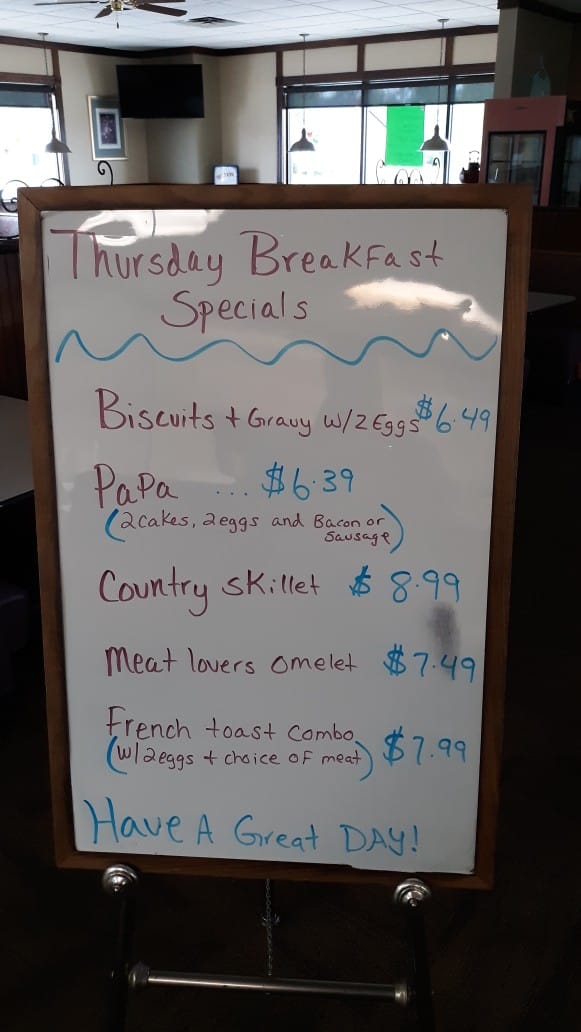 Thursday Breakfast
Specials
Biscuits + Gravy w/2 Eggs $6.49
PaPa ... $6.39
(2 cakes, 2 eggs and Bacon or
Sausage)
Country skillet $8.99
Meat lovers omelet $7.49
French toast combo
(w/2eggs + choice of meat) $7.99
Have A Great DAY!